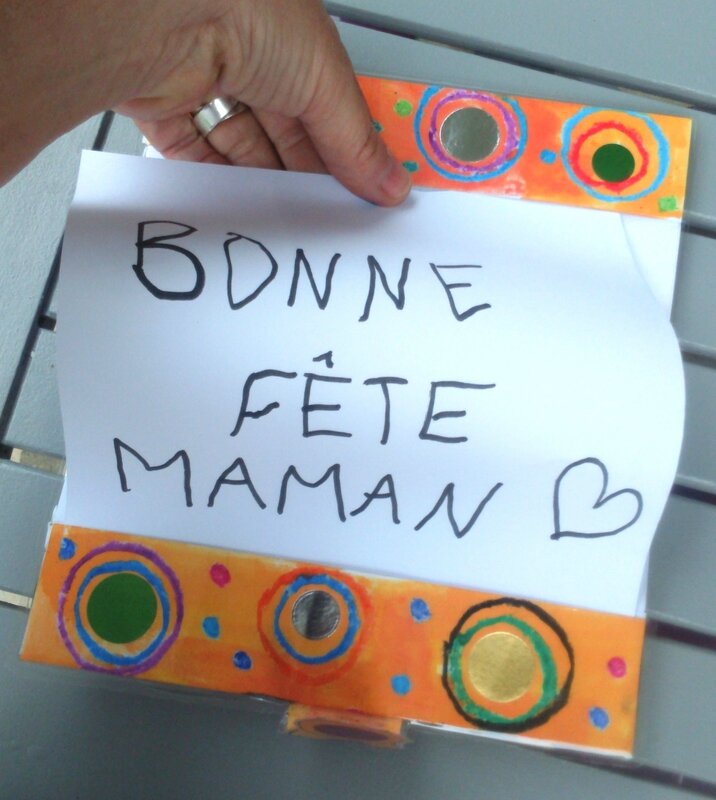 BONNE
FÊTE
MAMAN ♡